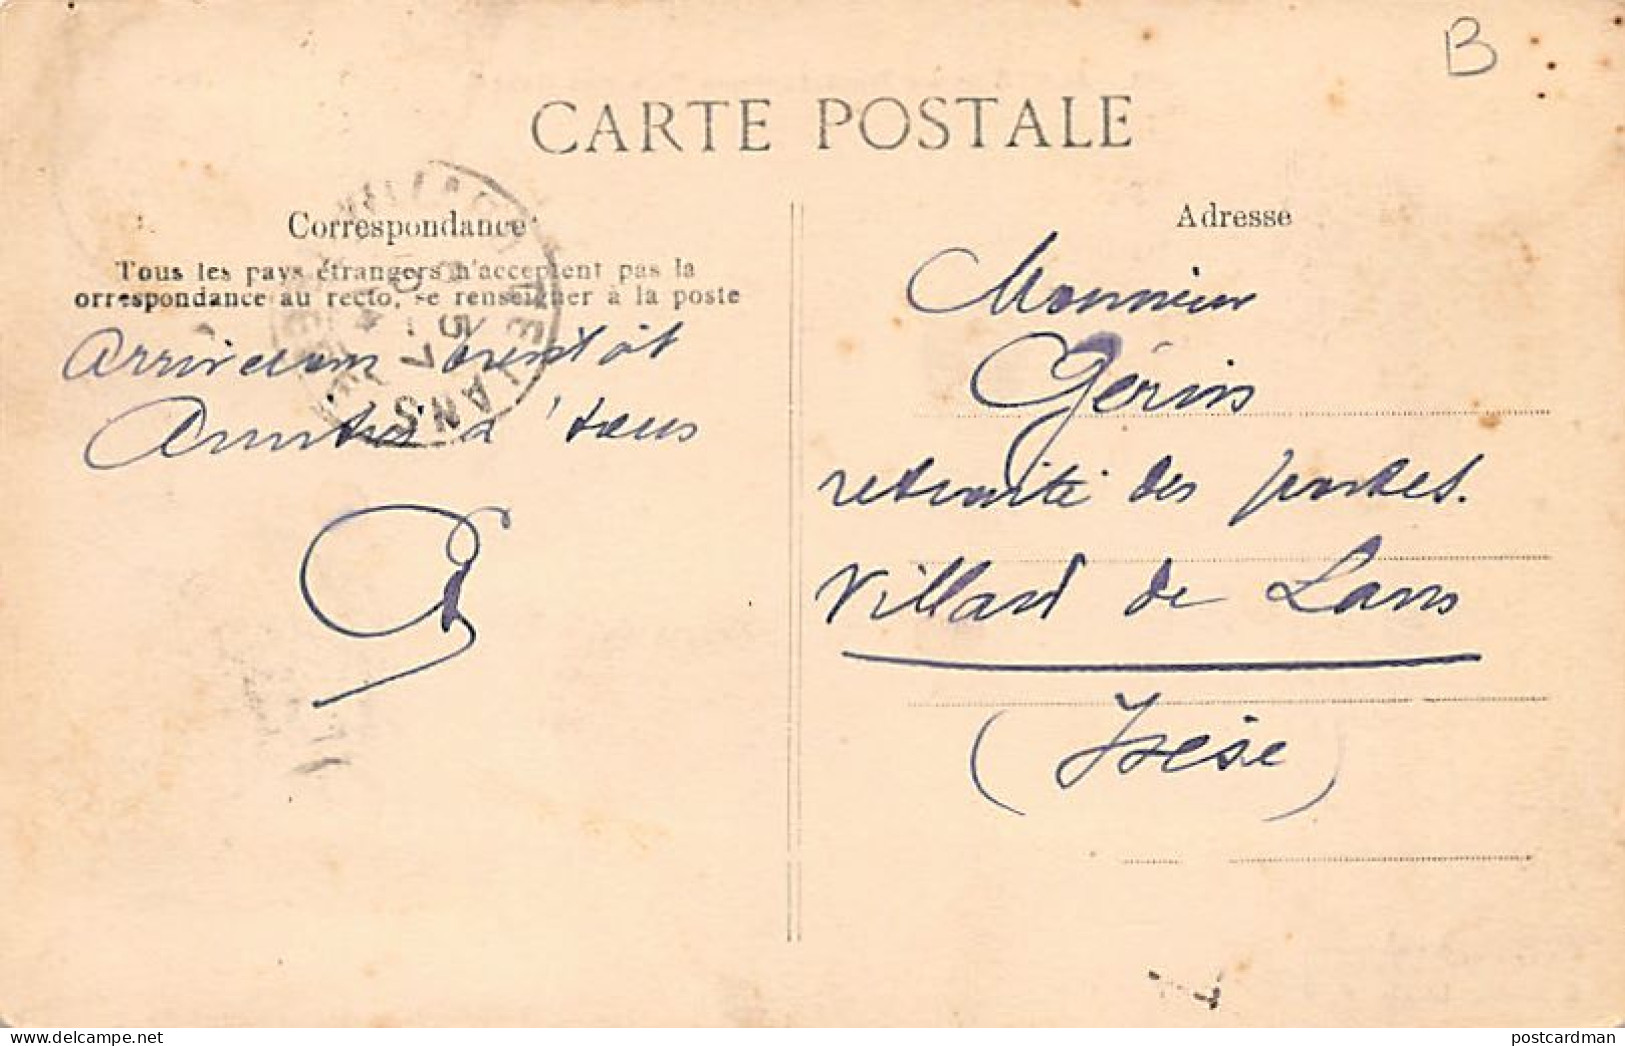 B
CARTE POSTALE
Correspondance
Tous les pays étrangers n'acceptent pas la
orrespondance au recto, se renseigner à la poste
Arriverons bientôt
Amitiés à tous
Adresse
Monsieur
Gérin
retraité des postes.
Villard de Lans
(Isère)
LANS
postcardman